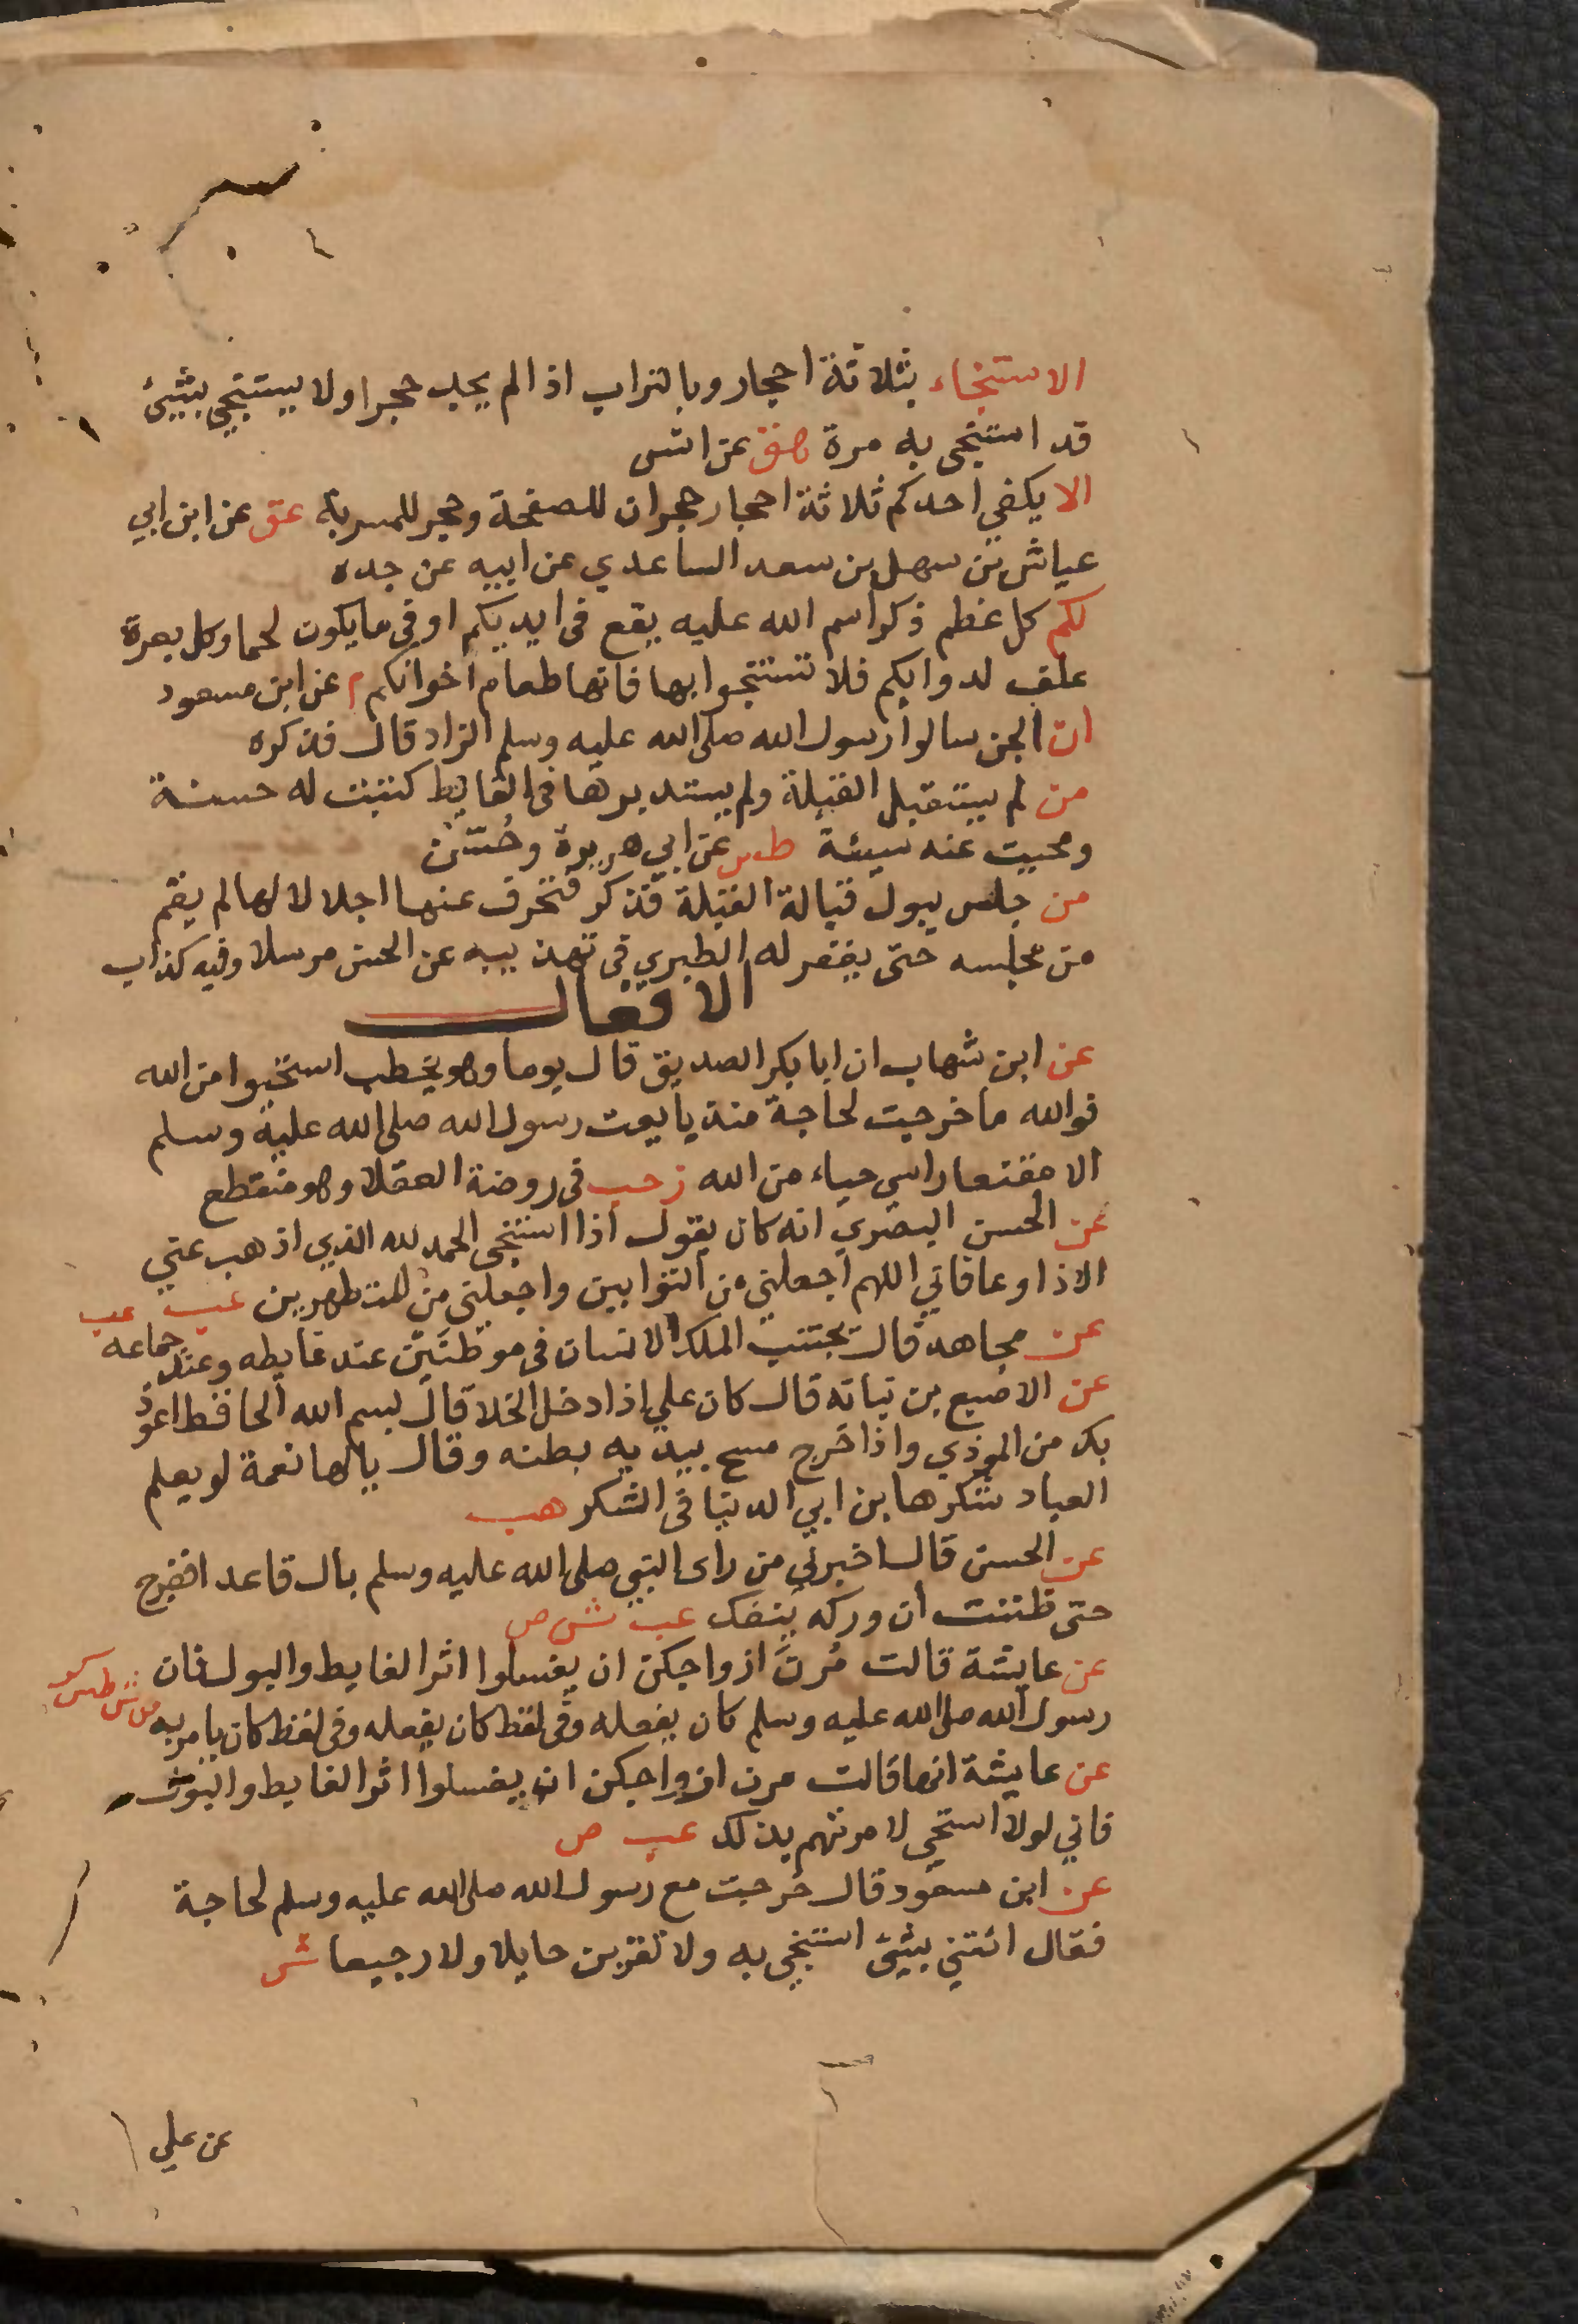 الاستنجاء بثلاثة احجار وبالتراب اذا لم يجد حجرا ولا يستنجي بشيئ
قد استنجى به مرة هق عن انس
الا يكفي احدكم ثلاثة احجار حجران للصفحة وحجر للمسربة عق عن ابن ابي
عياش بن سهل بن سعد الساعدي عن ابيه عن جده
لكم كل عظم ذكر اسم الله عليه يقع فى ايديكم اوفى ما يكون لحما وكل بعرة
علف لدوابكم فلا تستنجوا بها فانها طعام اخوانكم م عن ابن مسعود
ان الجن سالوا رسول الله صلى الله عليه وسلم الزاد قال فذكره
من لم يستقبل القبلة ولم يستدبرها فى الغايط كتبت له حسنة
ومحيت عنه سيئة طس عن ابي هريرة وحسن
من جلس يبول قبالة القبلة فذكر فتحرف عنها اجلالا لها لم يقم
من مجلسه حتى يغفر له الطبري فى تهذيبه عن الحسن مرسلا وفيه كذاب
الافعال
عن ابن شهاب ان ابا بكر الصديق قال يوما وهو يخطب استحيوا من الله
فوالله ما خرجت لحاجة منذ بايعت رسول الله صلى الله عليه وسلم
الا مقنعا راسي حياء من الله ز حب فى روضة العقلا وهو منقطع
عن الحسن البصري انه كان يقول اذا استنجى الحمد لله الذي اذهب عني
الاذا وعافاني اللهم اجعلني من التوابين واجعلني من المتطهرين عب عب
عن مجاهد قال يجتنب الملك الانسان فى موطنين عند غايطه وعند جماعه
عن الاصبع بن نباته قال كان علي اذا دخل الخلا قال بسم الله الحافظ اعوذ
بك من الموذي واذا خرج مسح بيديه بطنه وقال يالها نعمة لو يعلم
العباد شكرها بن ابي الدنيا فى الشكر هب
عن الحسن قال اخبرني من راى النبي صلى الله عليه وسلم بال قاعد افقرج
حتى ظننت ان وركه ينفك عب ش ص
عن عايشة قالت مرن ازواجكن ان يغسلوا اثر الغايط والبول فان
رسول الله صلى الله عليه وسلم كان يفعله وفى لفظ كان يفعله وفى لفظ كان يامر به
عن عايشة انها قالت مرن ازواجكن ان يغسلوا اثر الغايط والبول
فاني لولا استحي لامرتهم بذلك عب ص
عن ابن مسعود قال خرجت مع رسول الله صلى الله عليه وسلم لحاجة
فقال ائتني بشيئ استنجي به ولا تقربن حايلا ولا رجيعا ش
عن علي